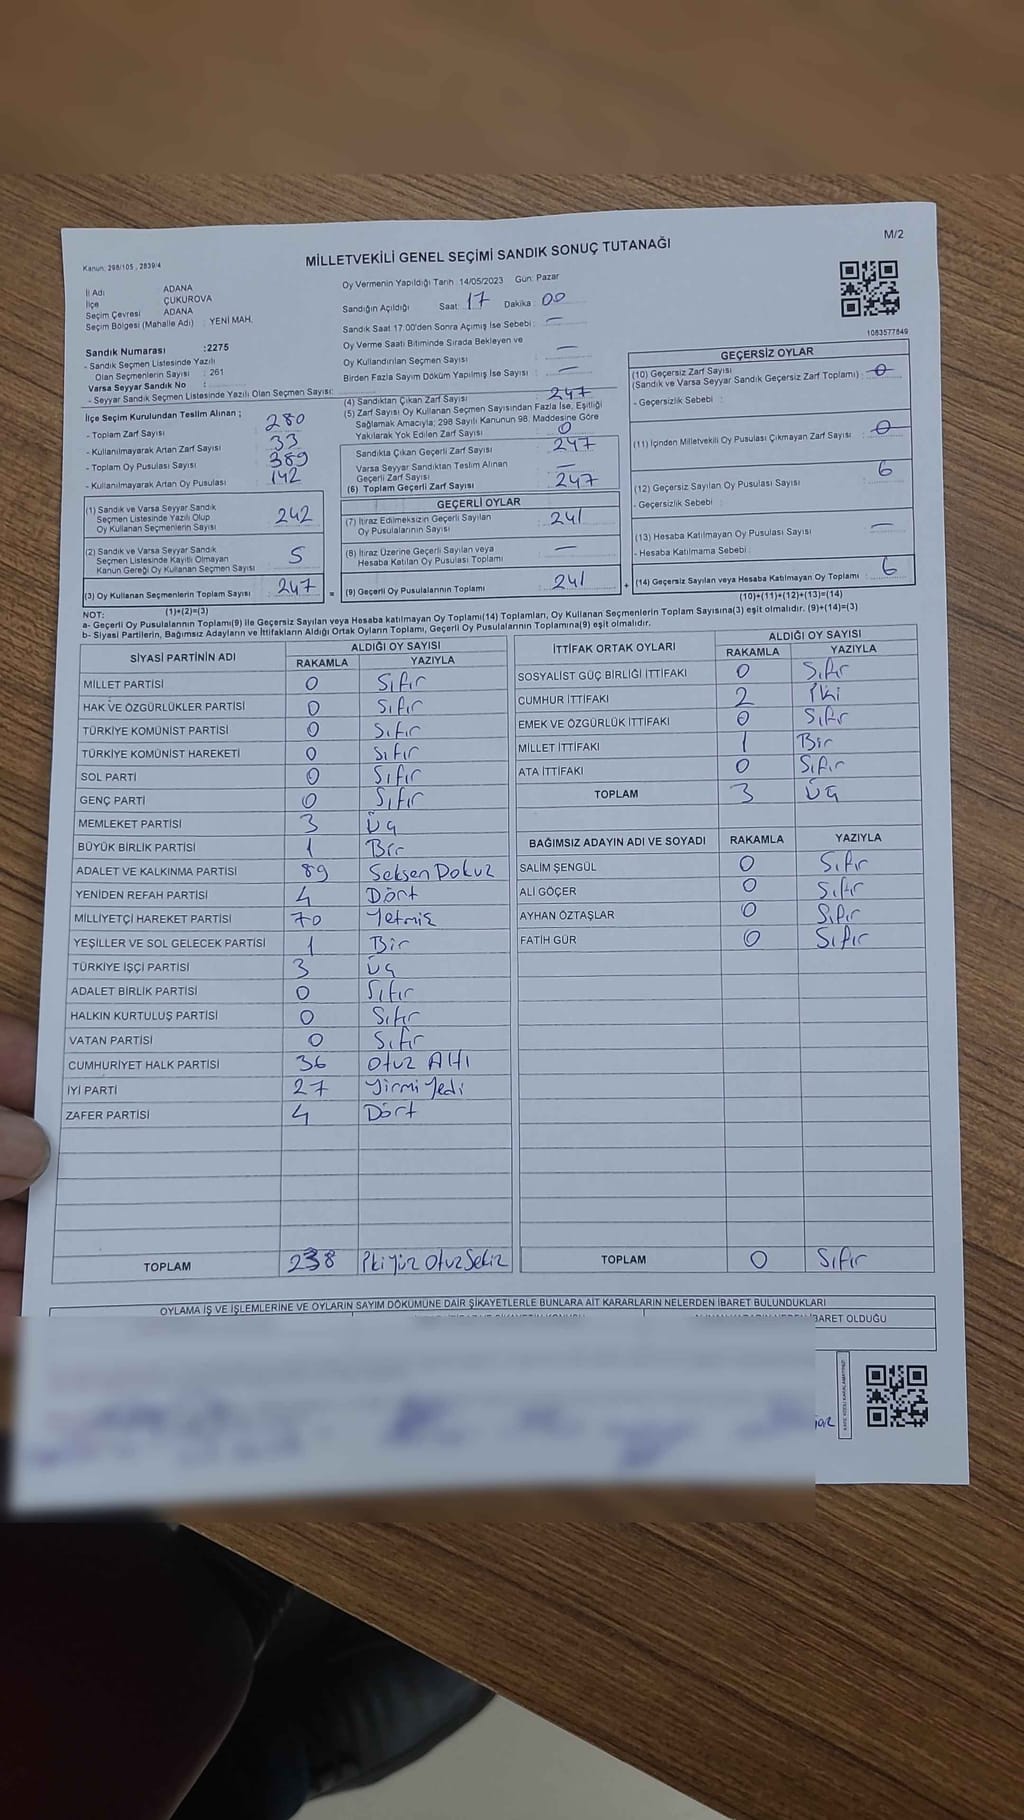 M/2
Kanun: 298/105 , 2839/4
MİLLETVEKİLİ GENEL SEÇİMİ SANDIK SONUÇ TUTANAĞI
İl Adı ADANA
İlçe ÇUKUROVA
Seçim Çevresi ADANA
Seçim Bölgesi (Mahalle Adı) : YENİ MAH.
Sandık Numarası :2275
- Sandık Seçmen Listesinde Yazılı
Olan Seçmenlerin Sayısı : 261
Varsa Seyyar Sandık No :
- Seyyar Sandık Seçmen Listesinde Yazılı Olan Seçmen Sayısı:
İlçe Seçim Kurulundan Teslim Alınan ;
- Toplam Zarf Sayısı : 280
- Kullanılmayarak Artan Zarf Sayısı : 33
- Toplam Oy Pusulası Sayısı : 389
- Kullanılmayarak Artan Oy Pusulası : 142
(1) Sandık ve Varsa Seyyar Sandık
Seçmen Listesinde Yazılı Olup
Oy Kullanan Seçmenlerin Sayısı : 242
(2) Sandık ve Varsa Seyyar Sandık
Seçmen Listesinde Kayıtlı Olmayan
Kanun Gereği Oy Kullanan Seçmen Sayısı : 5
(3) Oy Kullanan Seçmenlerin Toplam Sayısı : 247
(1)+(2)=(3)
Oy Vermenin Yapıldığı Tarih :14/05/2023 Gün: Pazar
Sandığın Açıldığı Saat: 17 Dakika : 00
Sandık Saat 17:00'den Sonra Açımış İse Sebebi : —
Oy Verme Saati Bitiminde Sırada Bekleyen ve
Oy Kullandırılan Seçmen Sayısı : —
Birden Fazla Sayım Döküm Yapılmış İse Sayısı : —
(4) Sandıktan Çıkan Zarf Sayısı : 247
(5) Zarf Sayısı Oy Kullanan Seçmen Sayısından Fazla İse, Eşitliği
Sağlamak Amacıyla; 298 Sayılı Kanunun 98. Maddesine Göre
Yakılarak Yok Edilen Zarf Sayısı : 0
Sandıkta Çıkan Geçerli Zarf Sayısı : 247
Varsa Seyyar Sandıktan Teslim Alınan
Geçerli Zarf Sayısı : —
(6) Toplam Geçerli Zarf Sayısı : 247
GEÇERLİ OYLAR
(7) İtiraz Edilmeksizin Geçerli Sayılan
Oy Pusulalarının Sayısı : 241
(8) İtiraz Üzerine Geçerli Sayılan veya
Hesaba Katılan Oy Pusulası Toplamı : —
= (9) Geçerli Oy Pusulalarının Toplamı : 241 +
1083577849
GEÇERSİZ OYLAR
(10) Geçersiz Zarf Sayısı
(Sandık ve Varsa Seyyar Sandık Geçersiz Zarf Toplamı) : 0
- Geçersizlik Sebebi :
(11) İçinden Milletvekili Oy Pusulası Çıkmayan Zarf Sayısı : 0
(12) Geçersiz Sayılan Oy Pusulası Sayısı : 6
- Geçersizlik Sebebi :
(13) Hesaba Katılmayan Oy Pusulası Sayısı : —
- Hesaba Katılmama Sebebi :
(14) Geçersiz Sayılan veya Hesaba Katılmayan Oy Toplamı : 6
(10)+(11)+(12)+(13)=(14)
NOT:
a- Geçerli Oy Pusulalarının Toplamı(9) ile Geçersiz Sayılan veya Hesaba katılmayan Oy Toplamı(14) Toplamları, Oy Kullanan Seçmenlerin Toplam Sayısına(3) eşit olmalıdır. (9)+(14)=(3)
b- Siyasi Partilerin, Bağımsız Adayların ve İttifakların Aldığı Ortak Oyların Toplamı, Geçerli Oy Pusulalarının Toplamına(9) eşit olmalıdır.
SİYASİ PARTİNİN ADI ALDIĞI OY SAYISI
RAKAMLA YAZIYLA
MİLLET PARTİSİ 0 Sıfır
HAK VE ÖZGÜRLÜKLER PARTİSİ 0 Sıfır
TÜRKİYE KOMÜNİST PARTİSİ 0 Sıfır
TÜRKİYE KOMÜNİST HAREKETİ 0 Sıfır
SOL PARTİ 0 Sıfır
GENÇ PARTİ 0 Sıfır
MEMLEKET PARTİSİ 3 Üç
BÜYÜK BİRLİK PARTİSİ 1 Bir
ADALET VE KALKINMA PARTİSİ 89 Seksen Dokuz
YENİDEN REFAH PARTİSİ 4 Dört
MİLLİYETÇİ HAREKET PARTİSİ 70 Yetmiş
YEŞİLLER VE SOL GELECEK PARTİSİ 1 Bir
TÜRKİYE İŞÇİ PARTİSİ 3 Üç
ADALET BİRLİK PARTİSİ 0 Sıfır
HALKIN KURTULUŞ PARTİSİ 0 Sıfır
VATAN PARTİSİ 0 Sıfır
CUMHURİYET HALK PARTİSİ 36 Otuz Altı
İYİ PARTİ 27 Yirmi Yedi
ZAFER PARTİSİ 4 Dört
TOPLAM 238 İki Yüz Otuz Sekiz
İTTİFAK ORTAK OYLARI ALDIĞI OY SAYISI
RAKAMLA YAZIYLA
SOSYALİST GÜÇ BİRLİĞİ İTTİFAKI 0 Sıfır
CUMHUR İTTİFAKI 2 İki
EMEK VE ÖZGÜRLÜK İTTİFAKI 0 Sıfır
MİLLET İTTİFAKI 1 Bir
ATA İTTİFAKI 0 Sıfır
TOPLAM 3 Üç
BAĞIMSIZ ADAYIN ADI VE SOYADI RAKAMLA YAZIYLA
SALİM ŞENGÜL 0 Sıfır
ALİ GÖÇER 0 Sıfır
AYHAN ÖZTAŞLAR 0 Sıfır
FATİH GÜR 0 Sıfır
TOPLAM 0 Sıfır
OYLAMA İŞ VE İŞLEMLERİNE VE OYLARIN SAYIM DÖKÜMÜNE DAİR ŞİKAYETLERLE BUNLARA AİT KARARLARIN NELERDEN İBARET BULUNDUKLARI
İBARET OLDUĞU